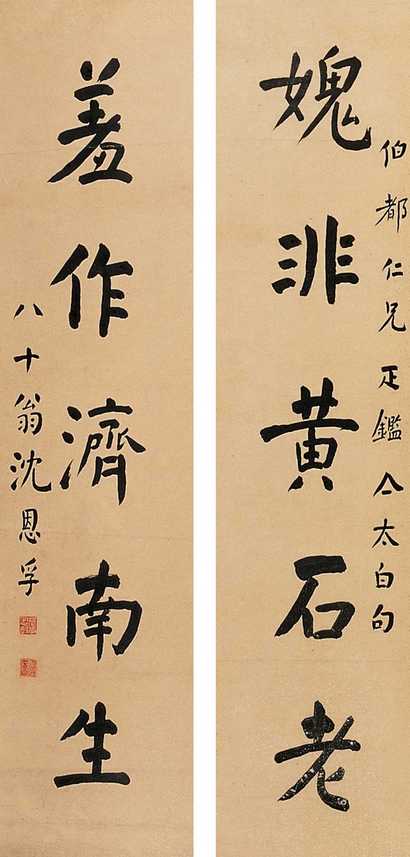 媿非黃石老
伯都仁兄疋鑑仝太白句
羞作濟南生
八十翁沈恩孚